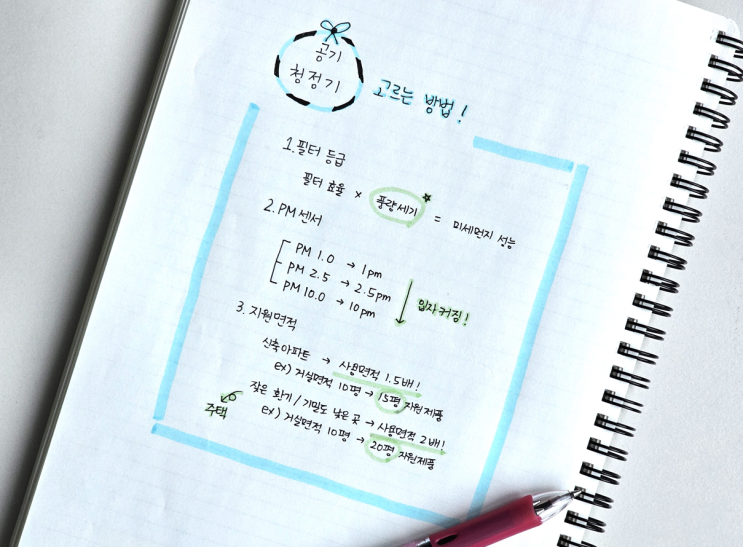 공기
청정기
고르는 방법!
1. 필터 등급
필터 효율 × 풍량세기 = 미세먼지 성능
2. PM 센서
PM 1.0 → 1pm
PM 2.5 → 2.5pm
PM 10.0 → 10pm
입자 커짐!
3. 지원면적
신축아파트 → 사용면적 1.5배!
ex) 거실면적 10평 → 15평 지원제품
잦은 환기 / 기밀도 낮은 곳 → 사용면적 2배!
주택
ex) 거실면적 10평 → 20평 지원제품